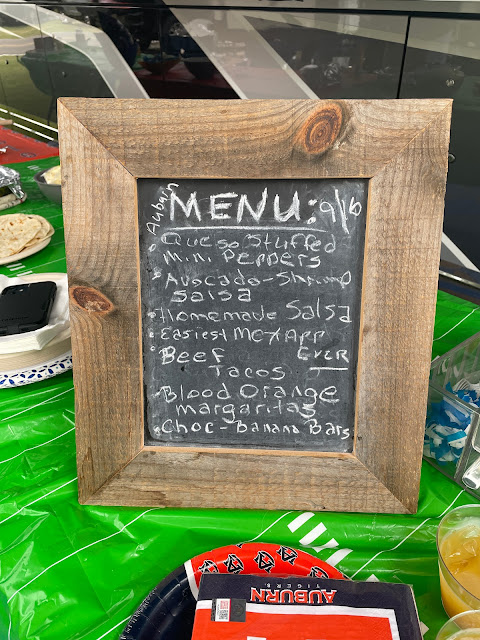 Auburn
MENU: 9/16
Queso stuffed
Mini Peppers
Avocado-Shrimp
Salsa
Homemade Salsa
Easiest Mex App
EVER
Beef
Tacos
Blood Orange
margaritas
Choc-Banana Bars
AUBURN
TIGERS